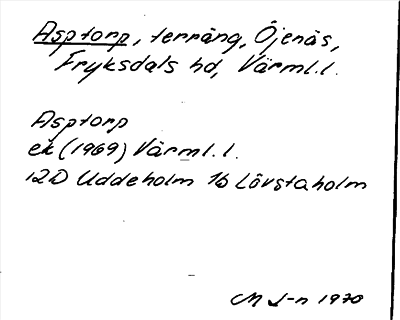 Asptorp, terräng, Öjenäs,
Fryksdals hd, Värml. l.
Asptorp
ek (1969) Värml. l.
12D Uddeholm 1b Lövstaholm
M J-n 1970